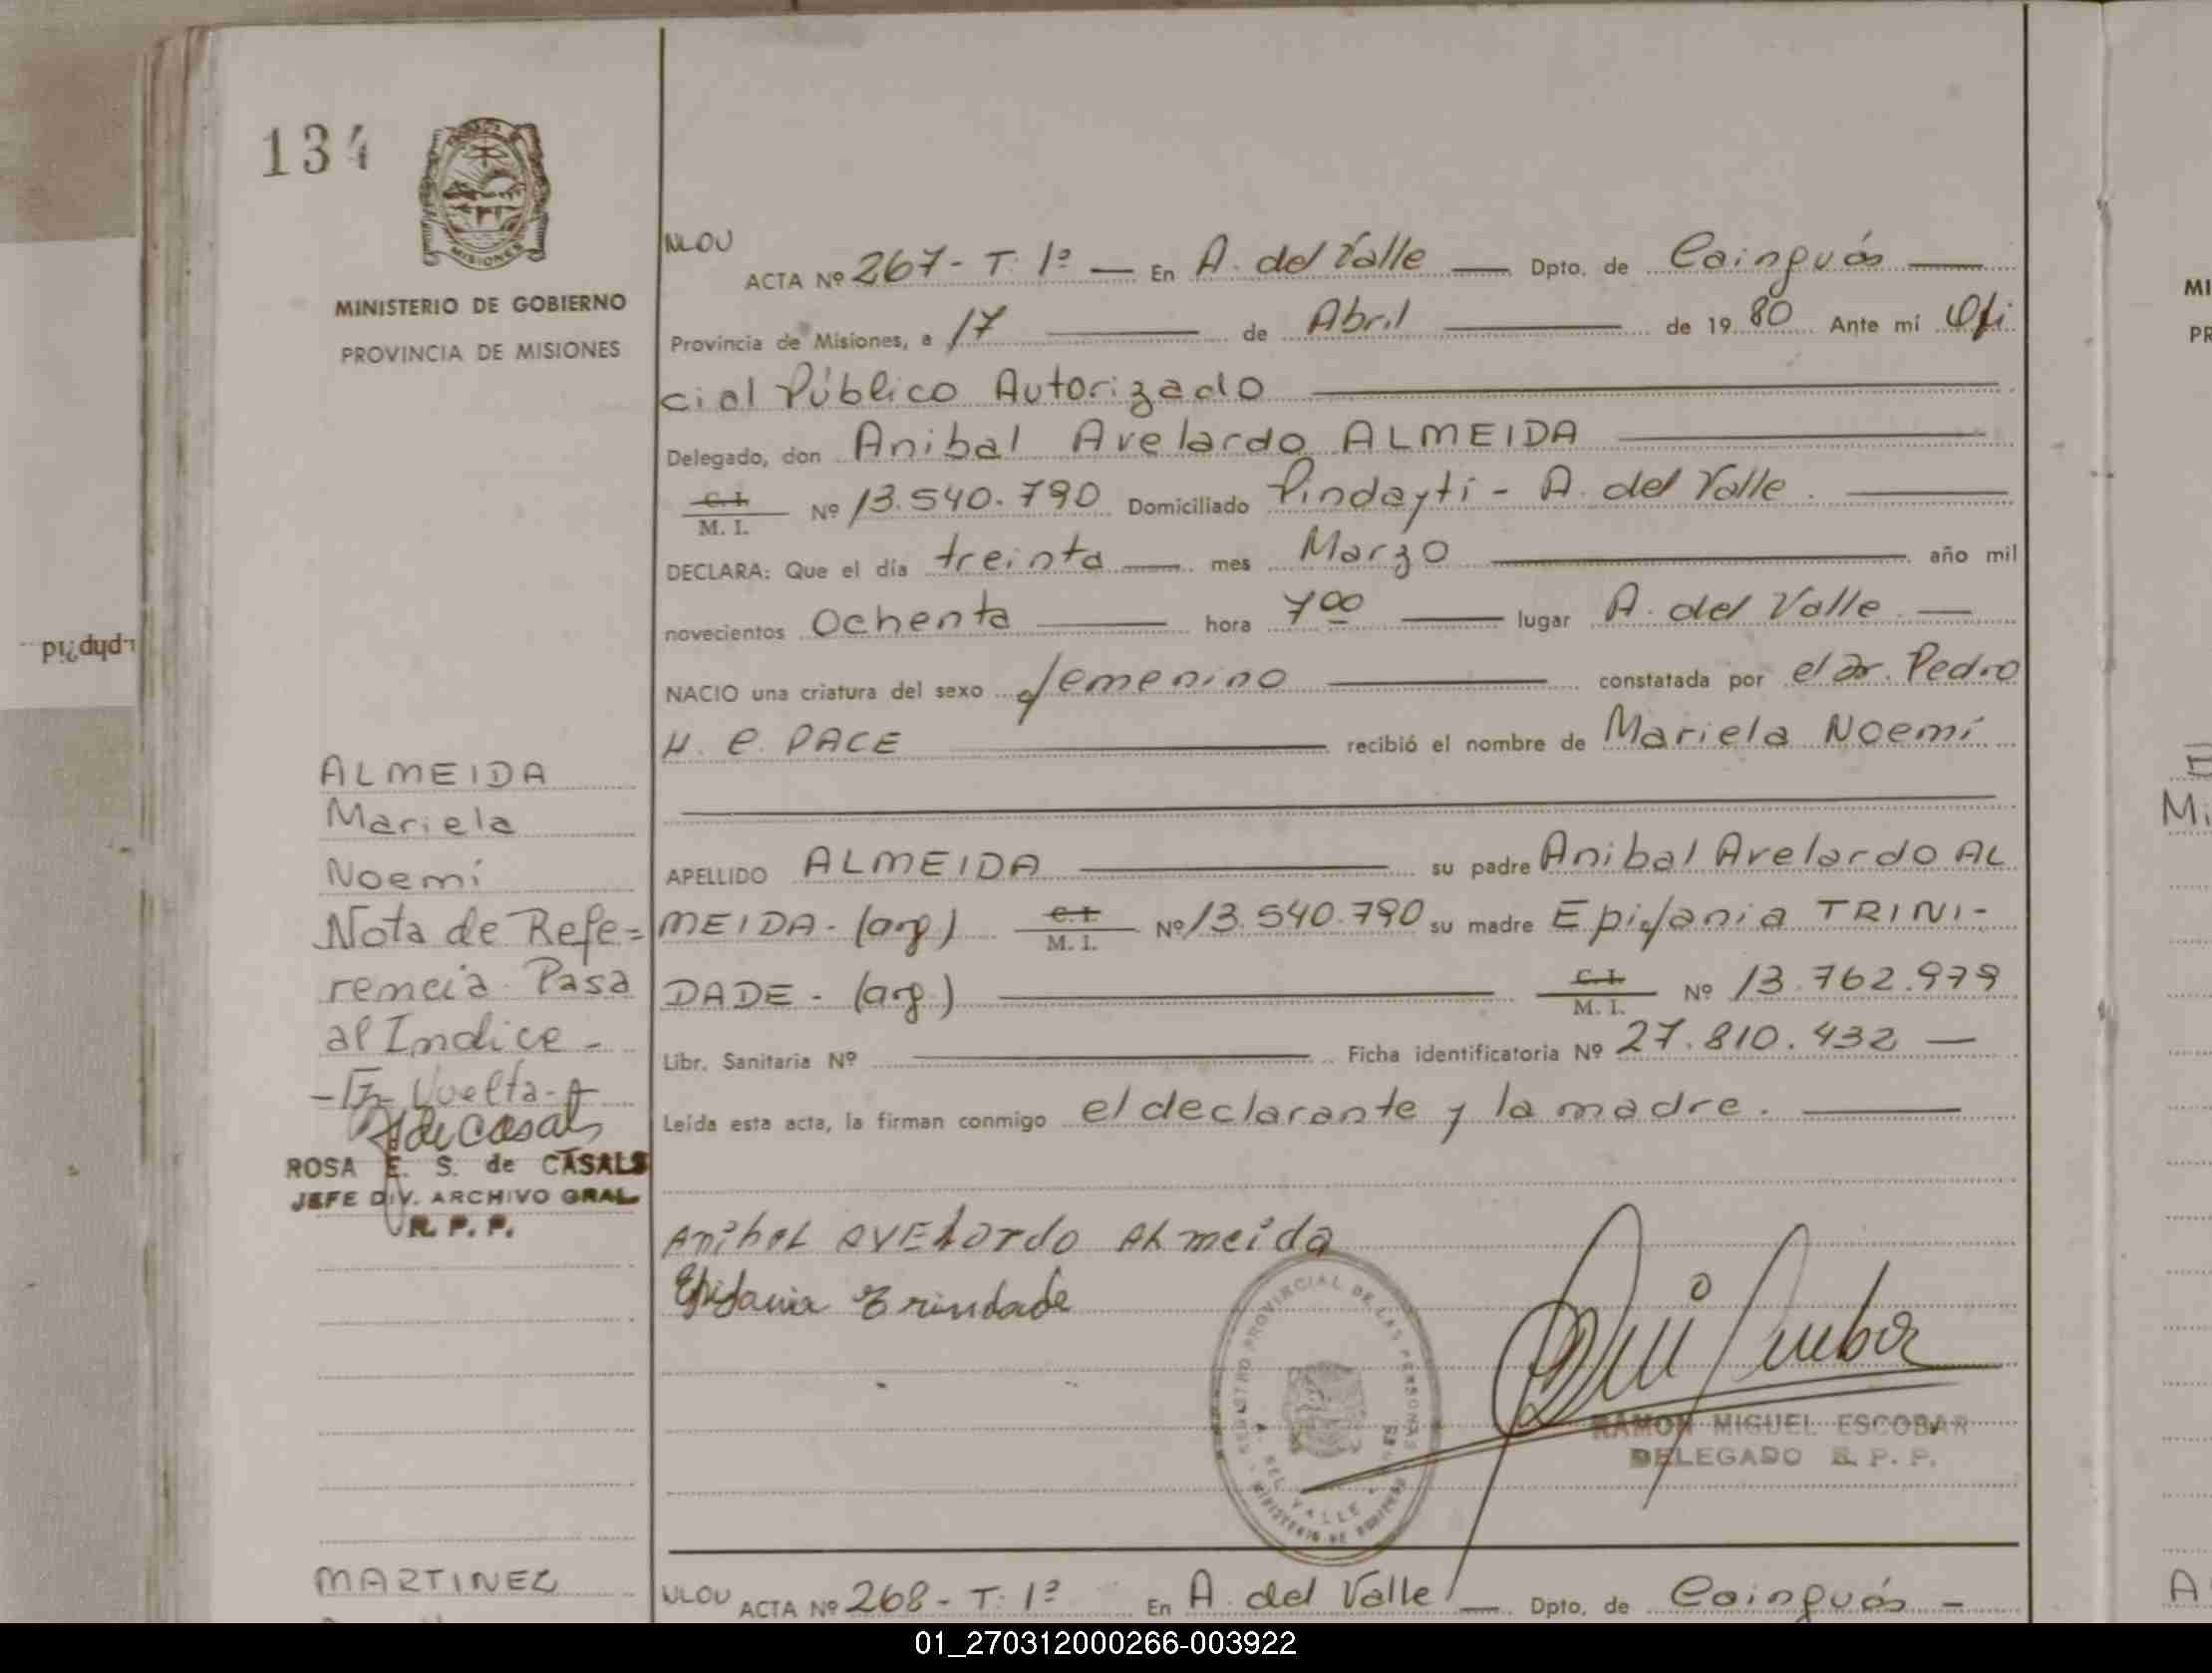 134
MISIONES
MINISTERIO DE GOBIERNO
PROVINCIA DE MISIONES
NLOU
ACTA Nº 267 - T. 1º — En A. del Valle — Dpto. de Cainguás —
Provincia de Misiones, a 17 — de Abril — de 1980 Ante mí Ofi
cial Público Autorizado —
Delegado, don Anibal Avelardo ALMEIDA —
C. I. M. I. Nº 13.540.790 Domiciliado Pindaytí - A. del Valle. —
DECLARA: Que el día treinta — mes Marzo — año mil
novecientos Ochenta — hora 7 00 — lugar A. del Valle. —
NACIO una criatura del sexo femenino — constatada por el Dr. Pedro
H. C. PACE — recibió el nombre de Mariela Noemí
APELLIDO ALMEIDA — su padre Anibal Avelardo AL
MEIDA - (arg) C. I. M. I. Nº 13.540.790 su madre Epifania TRINI-
DADE - (arg.) — C. I. M. I. Nº 13.762.979
Libr. Sanitaria Nº — Ficha identificatoria Nº 27.810.432 —
Leída esta acta, la firman conmigo el declarante y la madre. —
ALMEIDA
Mariela
Noemí
Nota de Refe=
rencia Pasa
al Indice -
Vuelta -
ROSA E. S. de CASALS
JEFE DIV. ARCHIVO GRAL
R. P. P.
Anibal AVELARDO ALMEIDA
Epifania Trindade
REGISTRO PROVINCIAL DE LAS PERSONAS
DEL VALLE
MINISTERIO DE GOBIERNO
RAMON MIGUEL ESCOBAR
DELEGADO R. P. P.
MARTINEZ
NLOU ACTA Nº 268 - T. 1º En A. del Valle — Dpto. de Cainguás -
MI
PR
Mi
A
.php?id
01_270312000266-003922